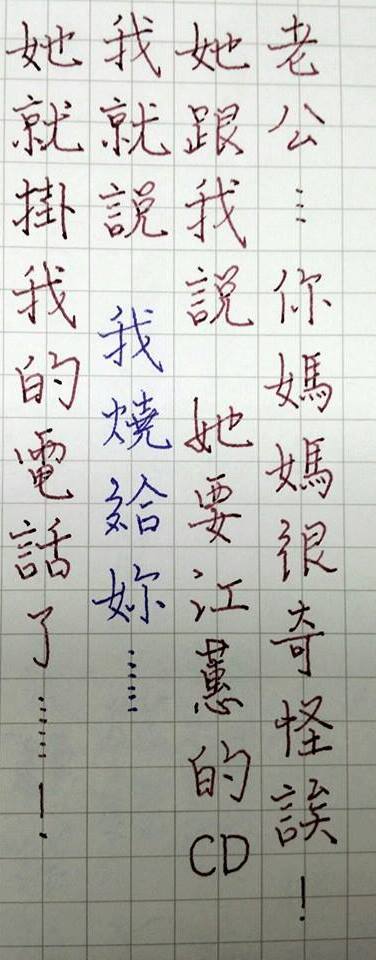 老公…你媽媽很奇怪誒！
她跟我說 她要江蕙的CD
我就說 我燒給妳……
她就掛我的電話了……！